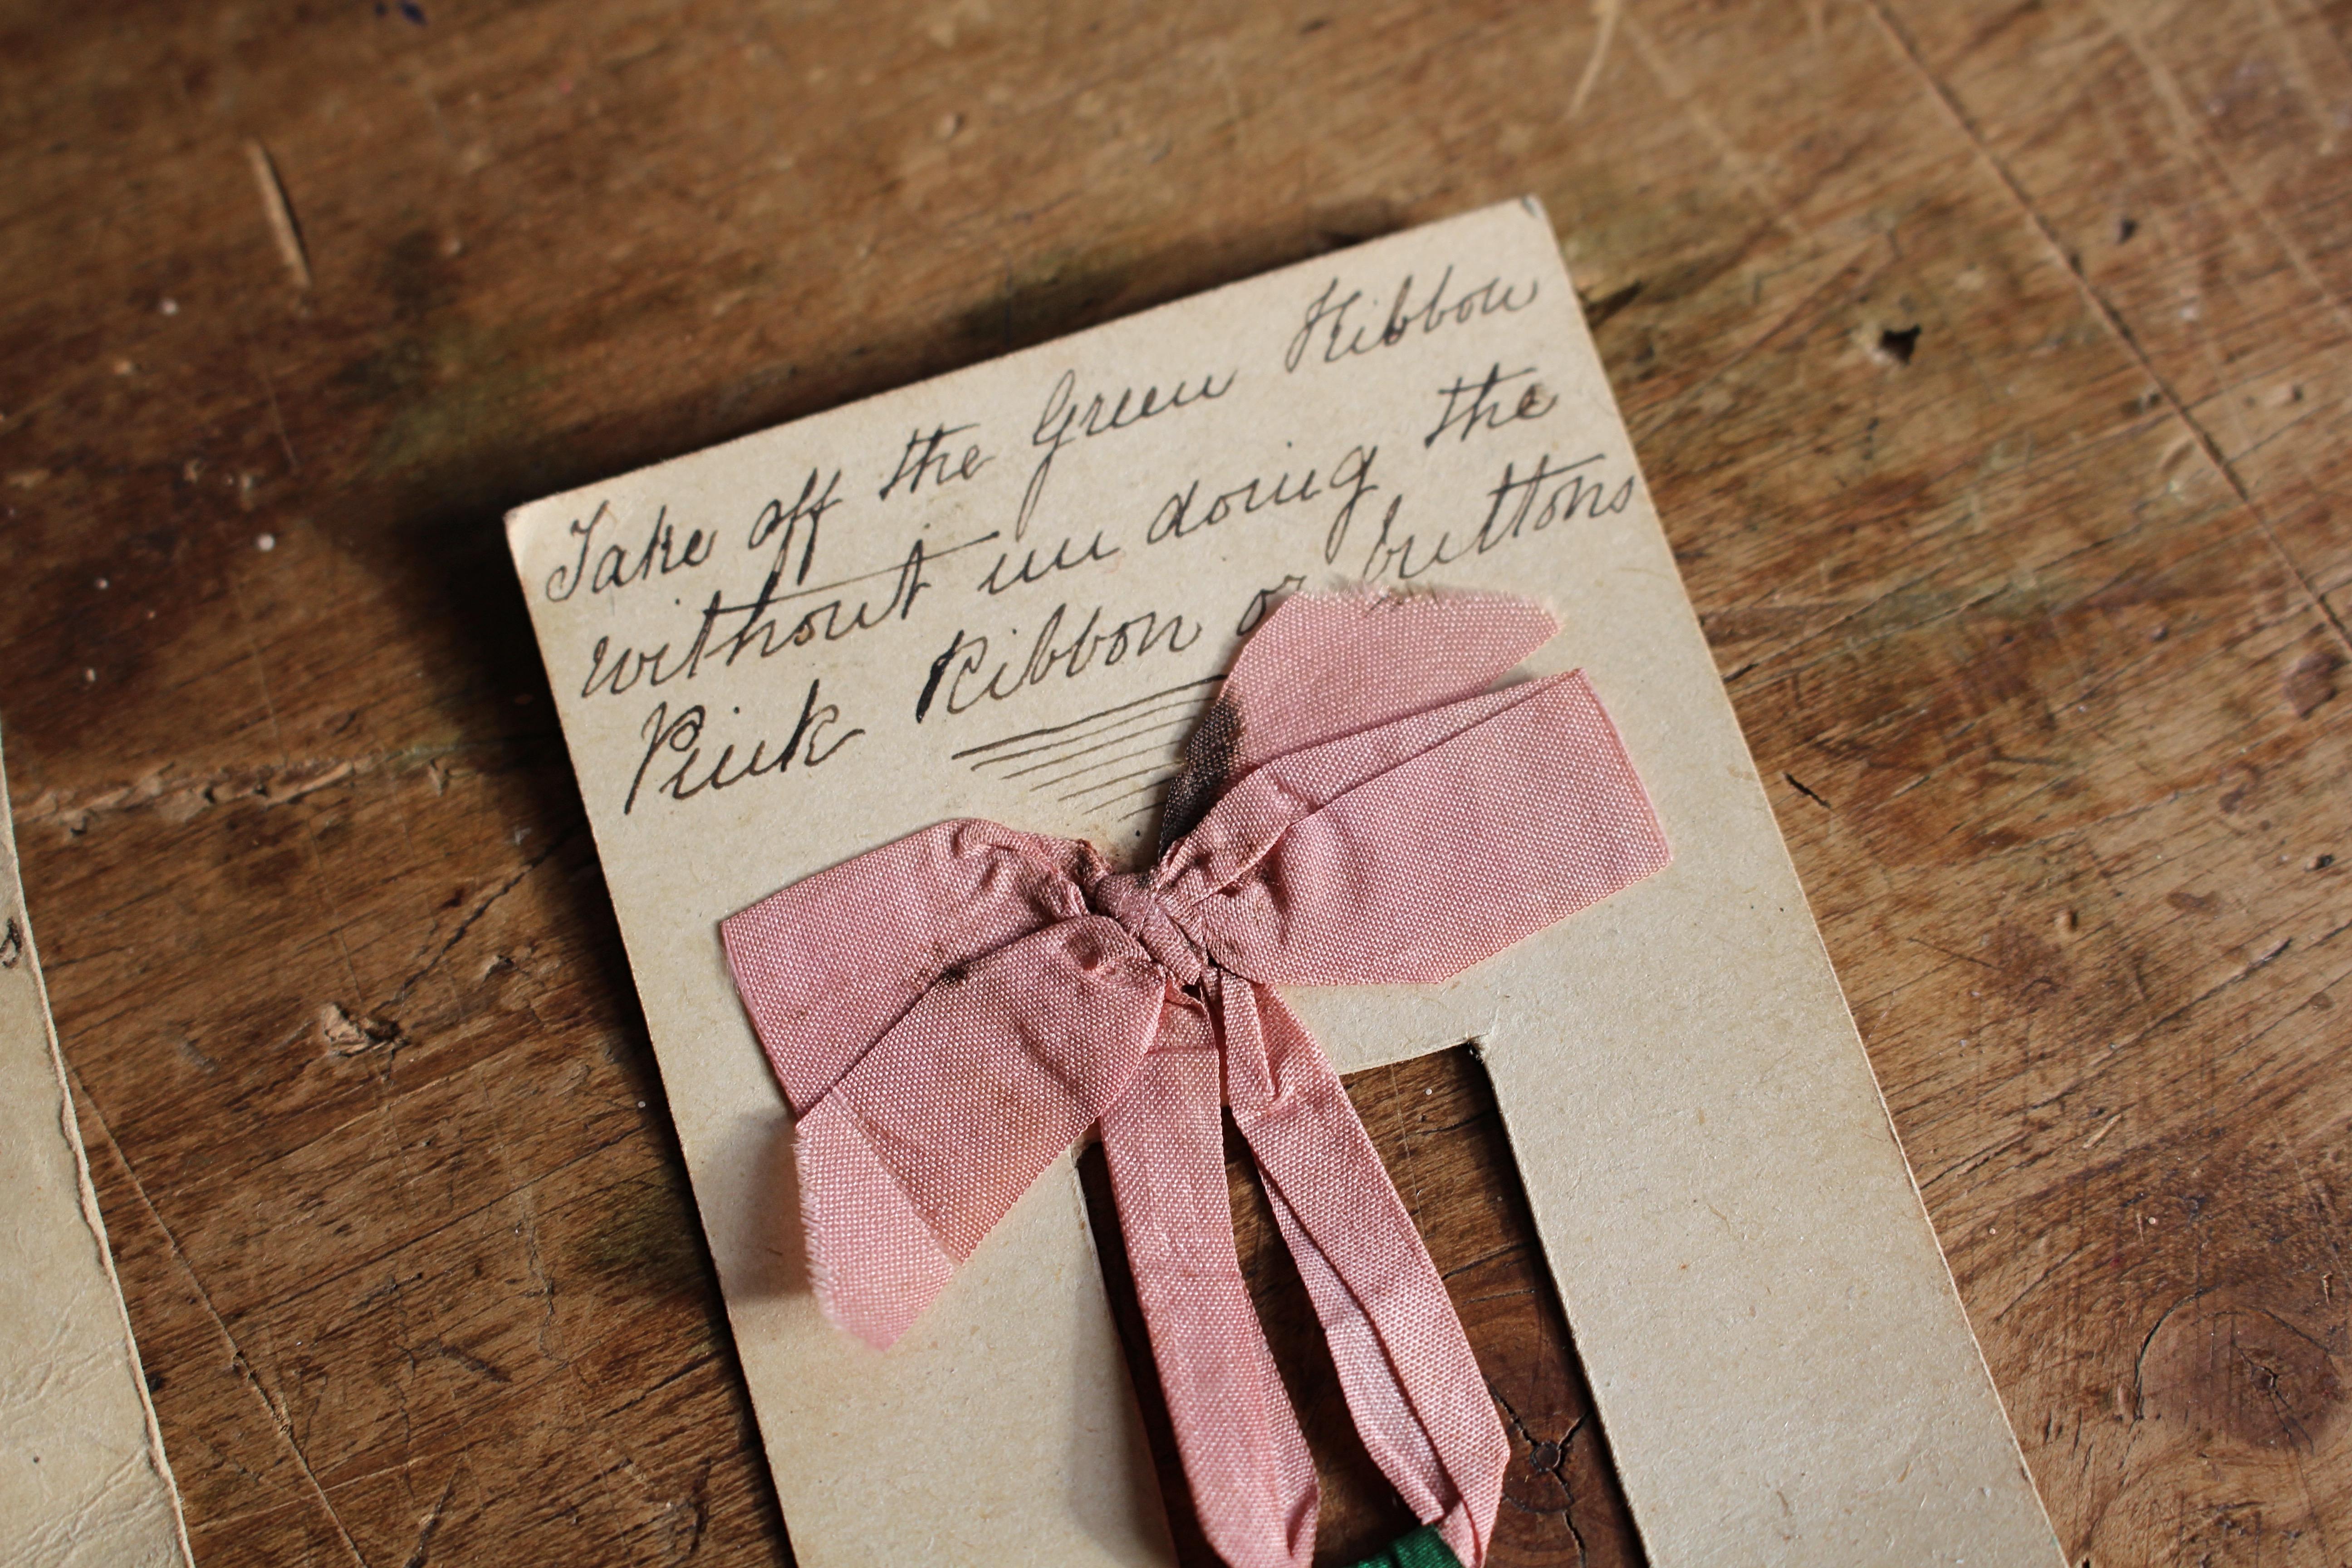 Take off the Green Ribbon
without un doing the
Pink Ribbon or buttons